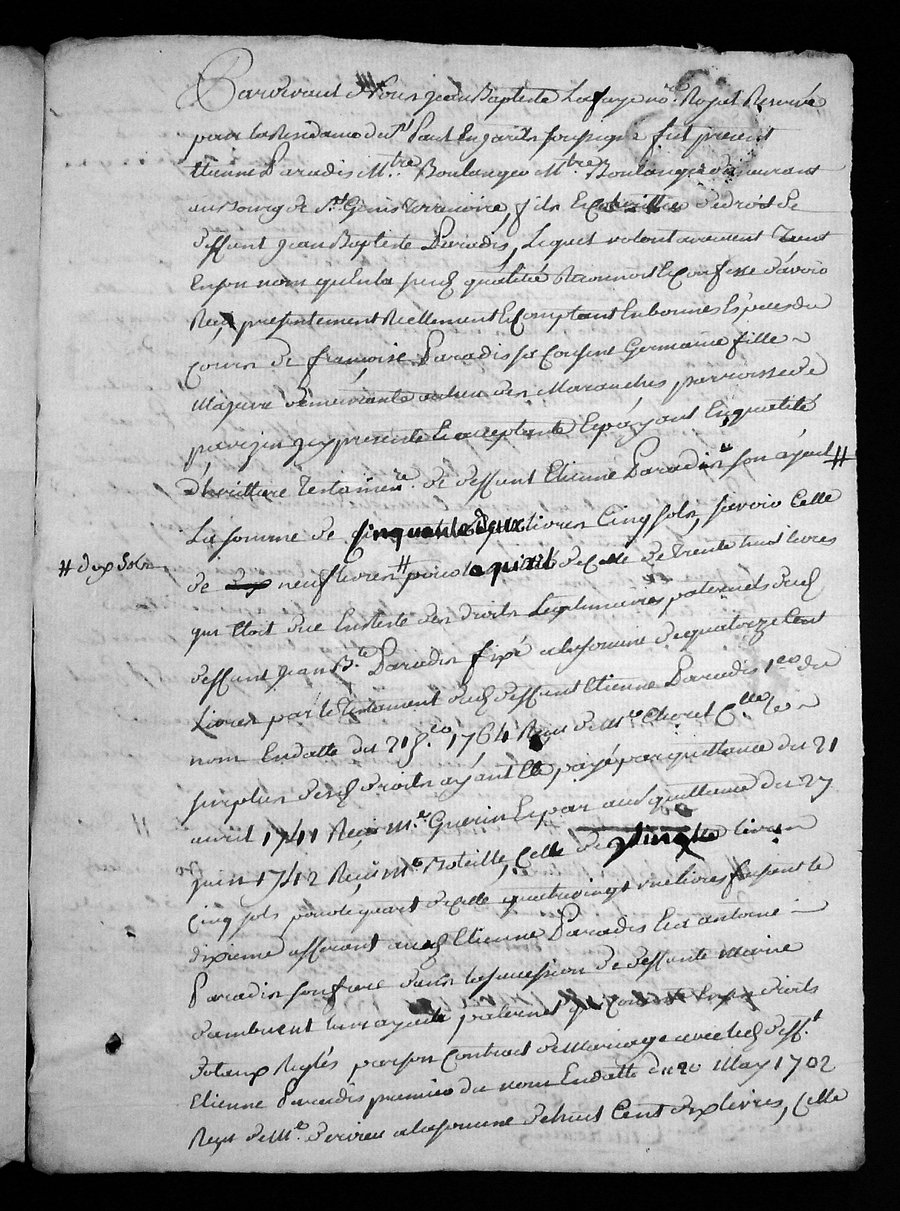 Pardevant Nous jean Baptiste Lafaye no.re Royal Reservé
pour la Residance de St Paul En jarets soussigné fut present
Etienne Paradis M.tre Boulanger M.tre Boulanger demeurant
au Bourg de St Genis terrenoire, fils Et heritier de droit de
deffunt jean Baptiste Paradis, Lequel volontairement tant
En son nom qu'En la susd qualité Reconnoit Et confesse d'avoir
Reçu presentement Réellement Et Comptant En bonnes Espéces du
Cours de françoise Paradis sa Cousine Germaine fille
Majeure demeurante au lieu des Maranches parroisse de
pavezin icy presente Et acceptante Et payant En qualité
d'heritiere Testamen.re de deffunt Etienne Paradis son ayeul #
La somme de Cinquante deux livres Cinq sols, savoir Celle
# dix sols
de neuf livres # pour le quart de Celle de Trente huit livres
qui Etoit due En Reste des droits Legitimaires paternels dud
deffunt jean B.te Paradis fixé a la somme de quatorze Cent
Livres par le Testament dud deffunt Etienne Paradis 1.er du
nom En datte du 21 1764 Reçu de M.e Chorel C.lle le
surplus desd droits ayant Eté payé par quittance du 21
avril 1741 Reçu M.e Guerin Et par autre quittance du 27
juin 1742 Reçu M.e Moteille, Celle de livres
Cinq sols pour le quart de Celle quatre vingt une livres faisant le
dixieme afferant aud Etienne Paradis Et a antoine
Paradis son frere dans la sucession de deffunte Marie
dambuent leur ayeule paternel droits
dotaux Reglés par son Contract de Mariage avec led deff.t
Etienne Paradis premier du nom En datte du 20 May 1702
Reçu de M.e d'ervieu a la somme de huit Cent dix livres, Celle